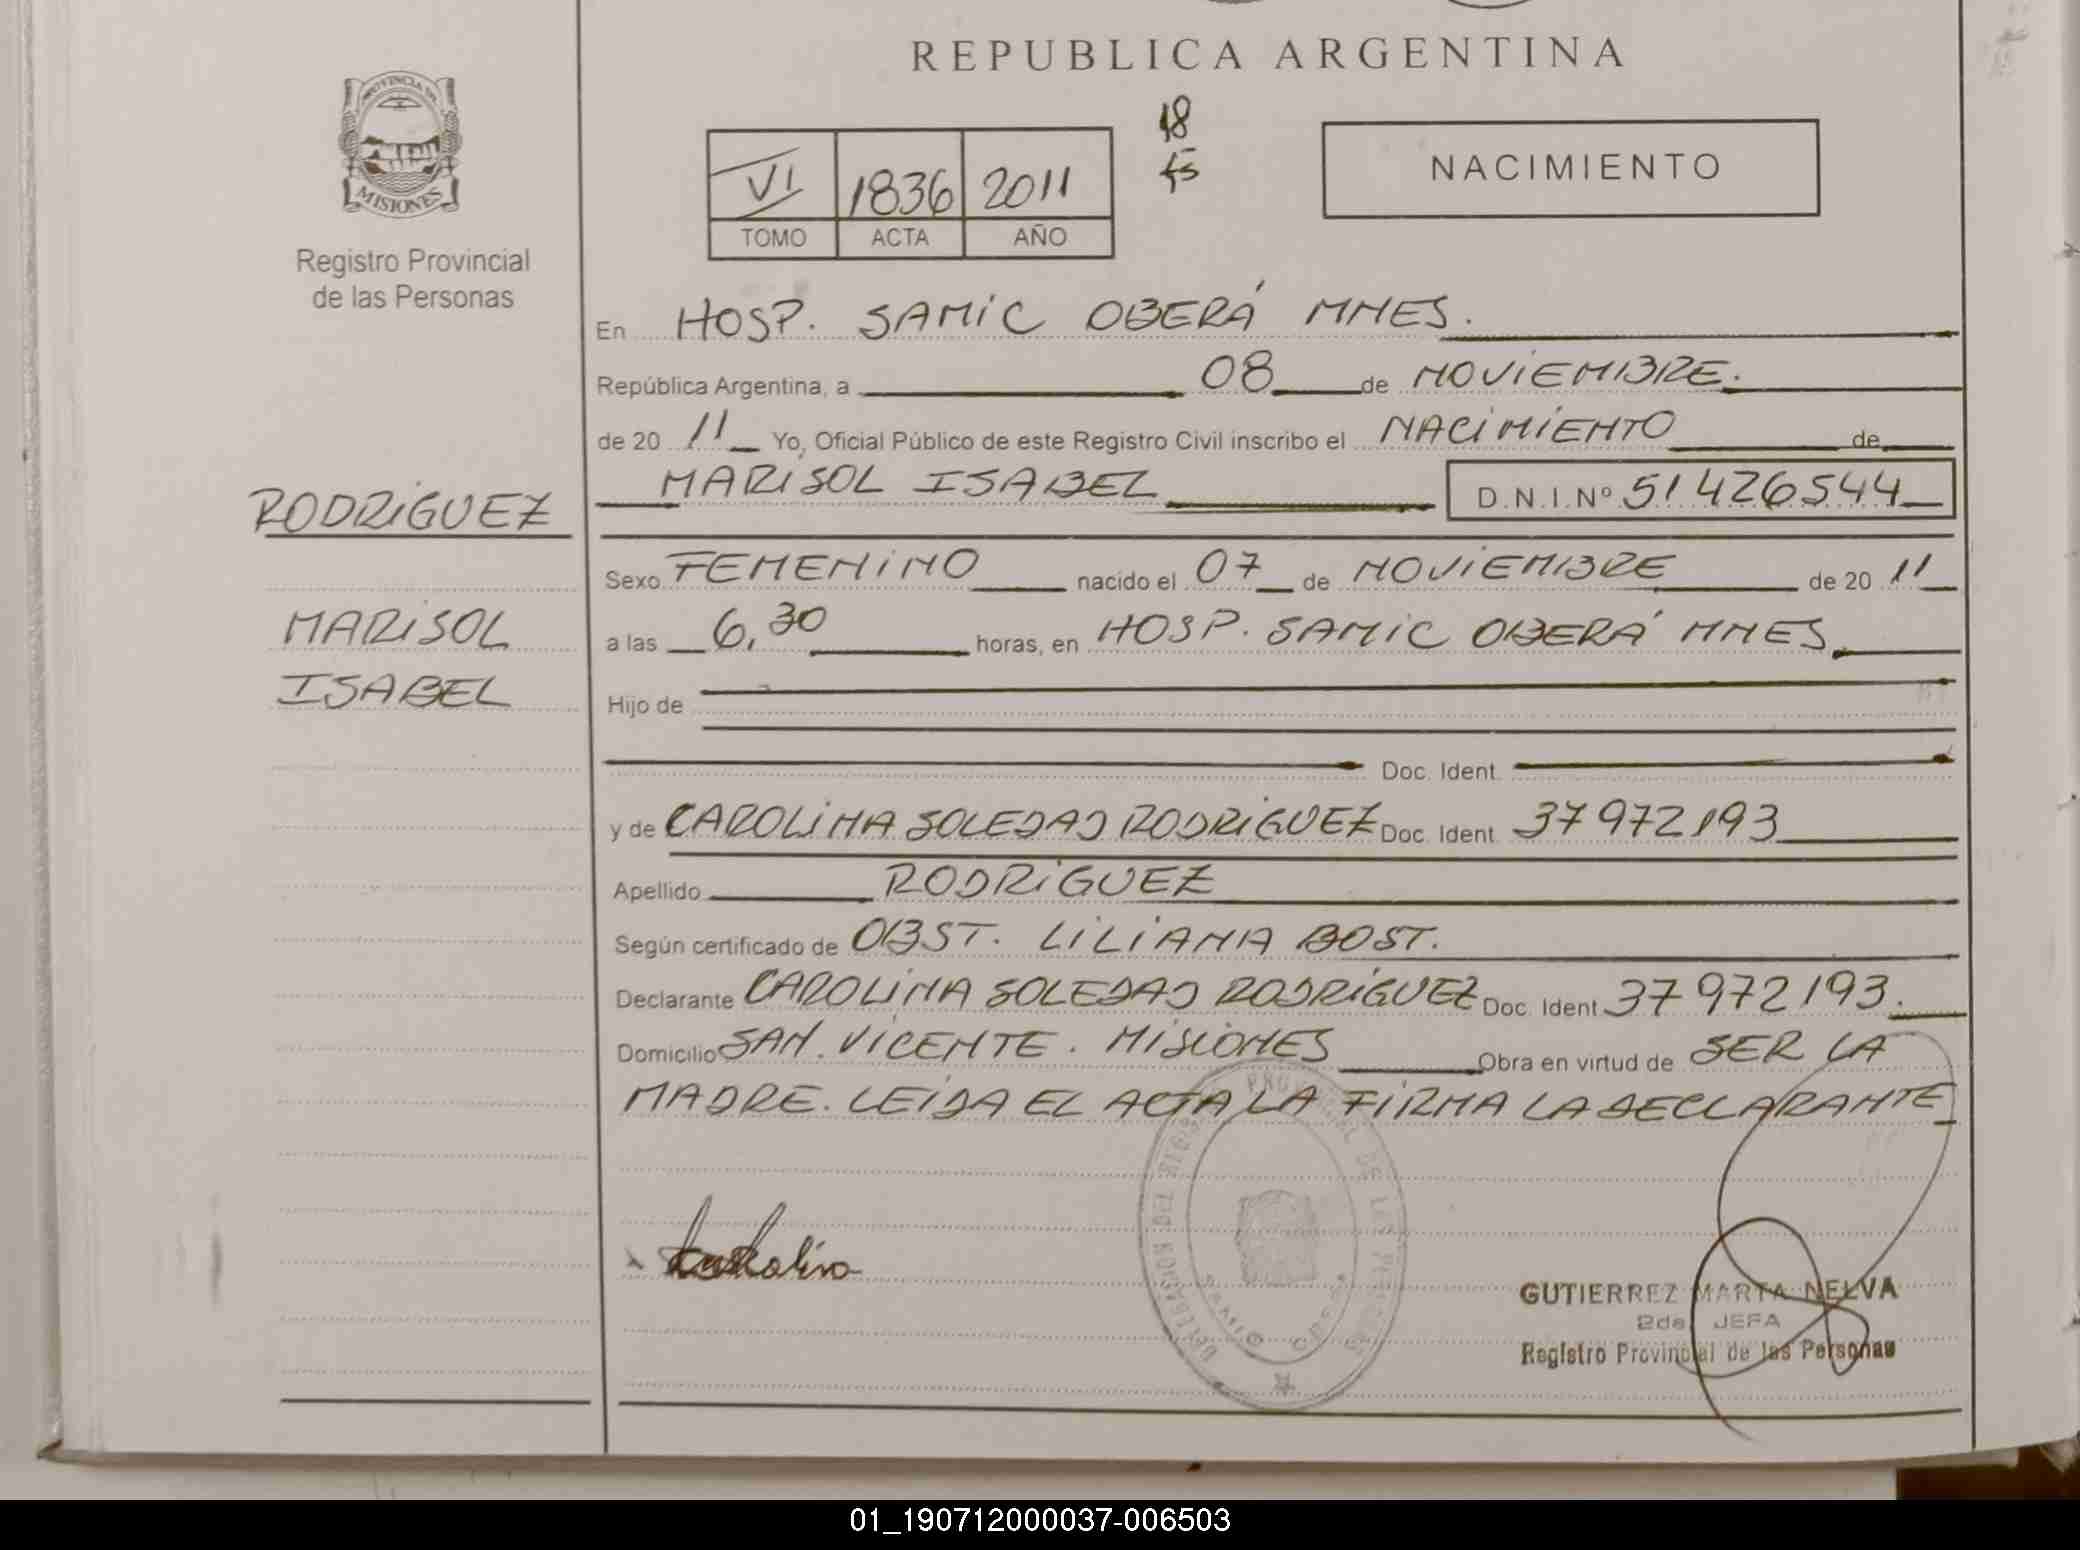 REPUBLICA ARGENTINA
PROVINCIA DE
MISIONES
Registro Provincial
de las Personas
18
15
NACIMIENTO
VI 1836 2011
TOMO ACTA AÑO
En HOSP. SAMIC OBERÁ MNES.
República Argentina, a 08 de NOVIEMBRE.
de 20 11 Yo, Oficial Público de este Registro Civil inscribo el NACIMIENTO de
MARISOL ISABEL D.N.I.Nº 51426544
RODRIGUEZ
MARISOL
ISABEL
Sexo FEMENINO nacido el 07 de NOVIEMBRE de 20 11
a las 6,30 horas, en HOSP. SAMIC OBERÁ MNES
Hijo de
Doc. Ident.
y de CAROLINA SOLEDAD RODRIGUEZ Doc. Ident. 37972193
Apellido RODRIGUEZ
Según certificado de OBST. LILIANA BOST.
Declarante CAROLINA SOLEDAD RODRIGUEZ Doc. Ident. 37972193.
Domicilio SAN. VICENTE. MISIONES Obra en virtud de SER LA
MADRE. LEIDA EL ACTA LA FIRMA LA DECLARANTE
DEL REGISTRO PROVINCIAL DE LAS PERSONAS
GUTIERREZ MARTA NELVA
2da JEFA
Registro Provincial de las Personas
01_190712000037-006503